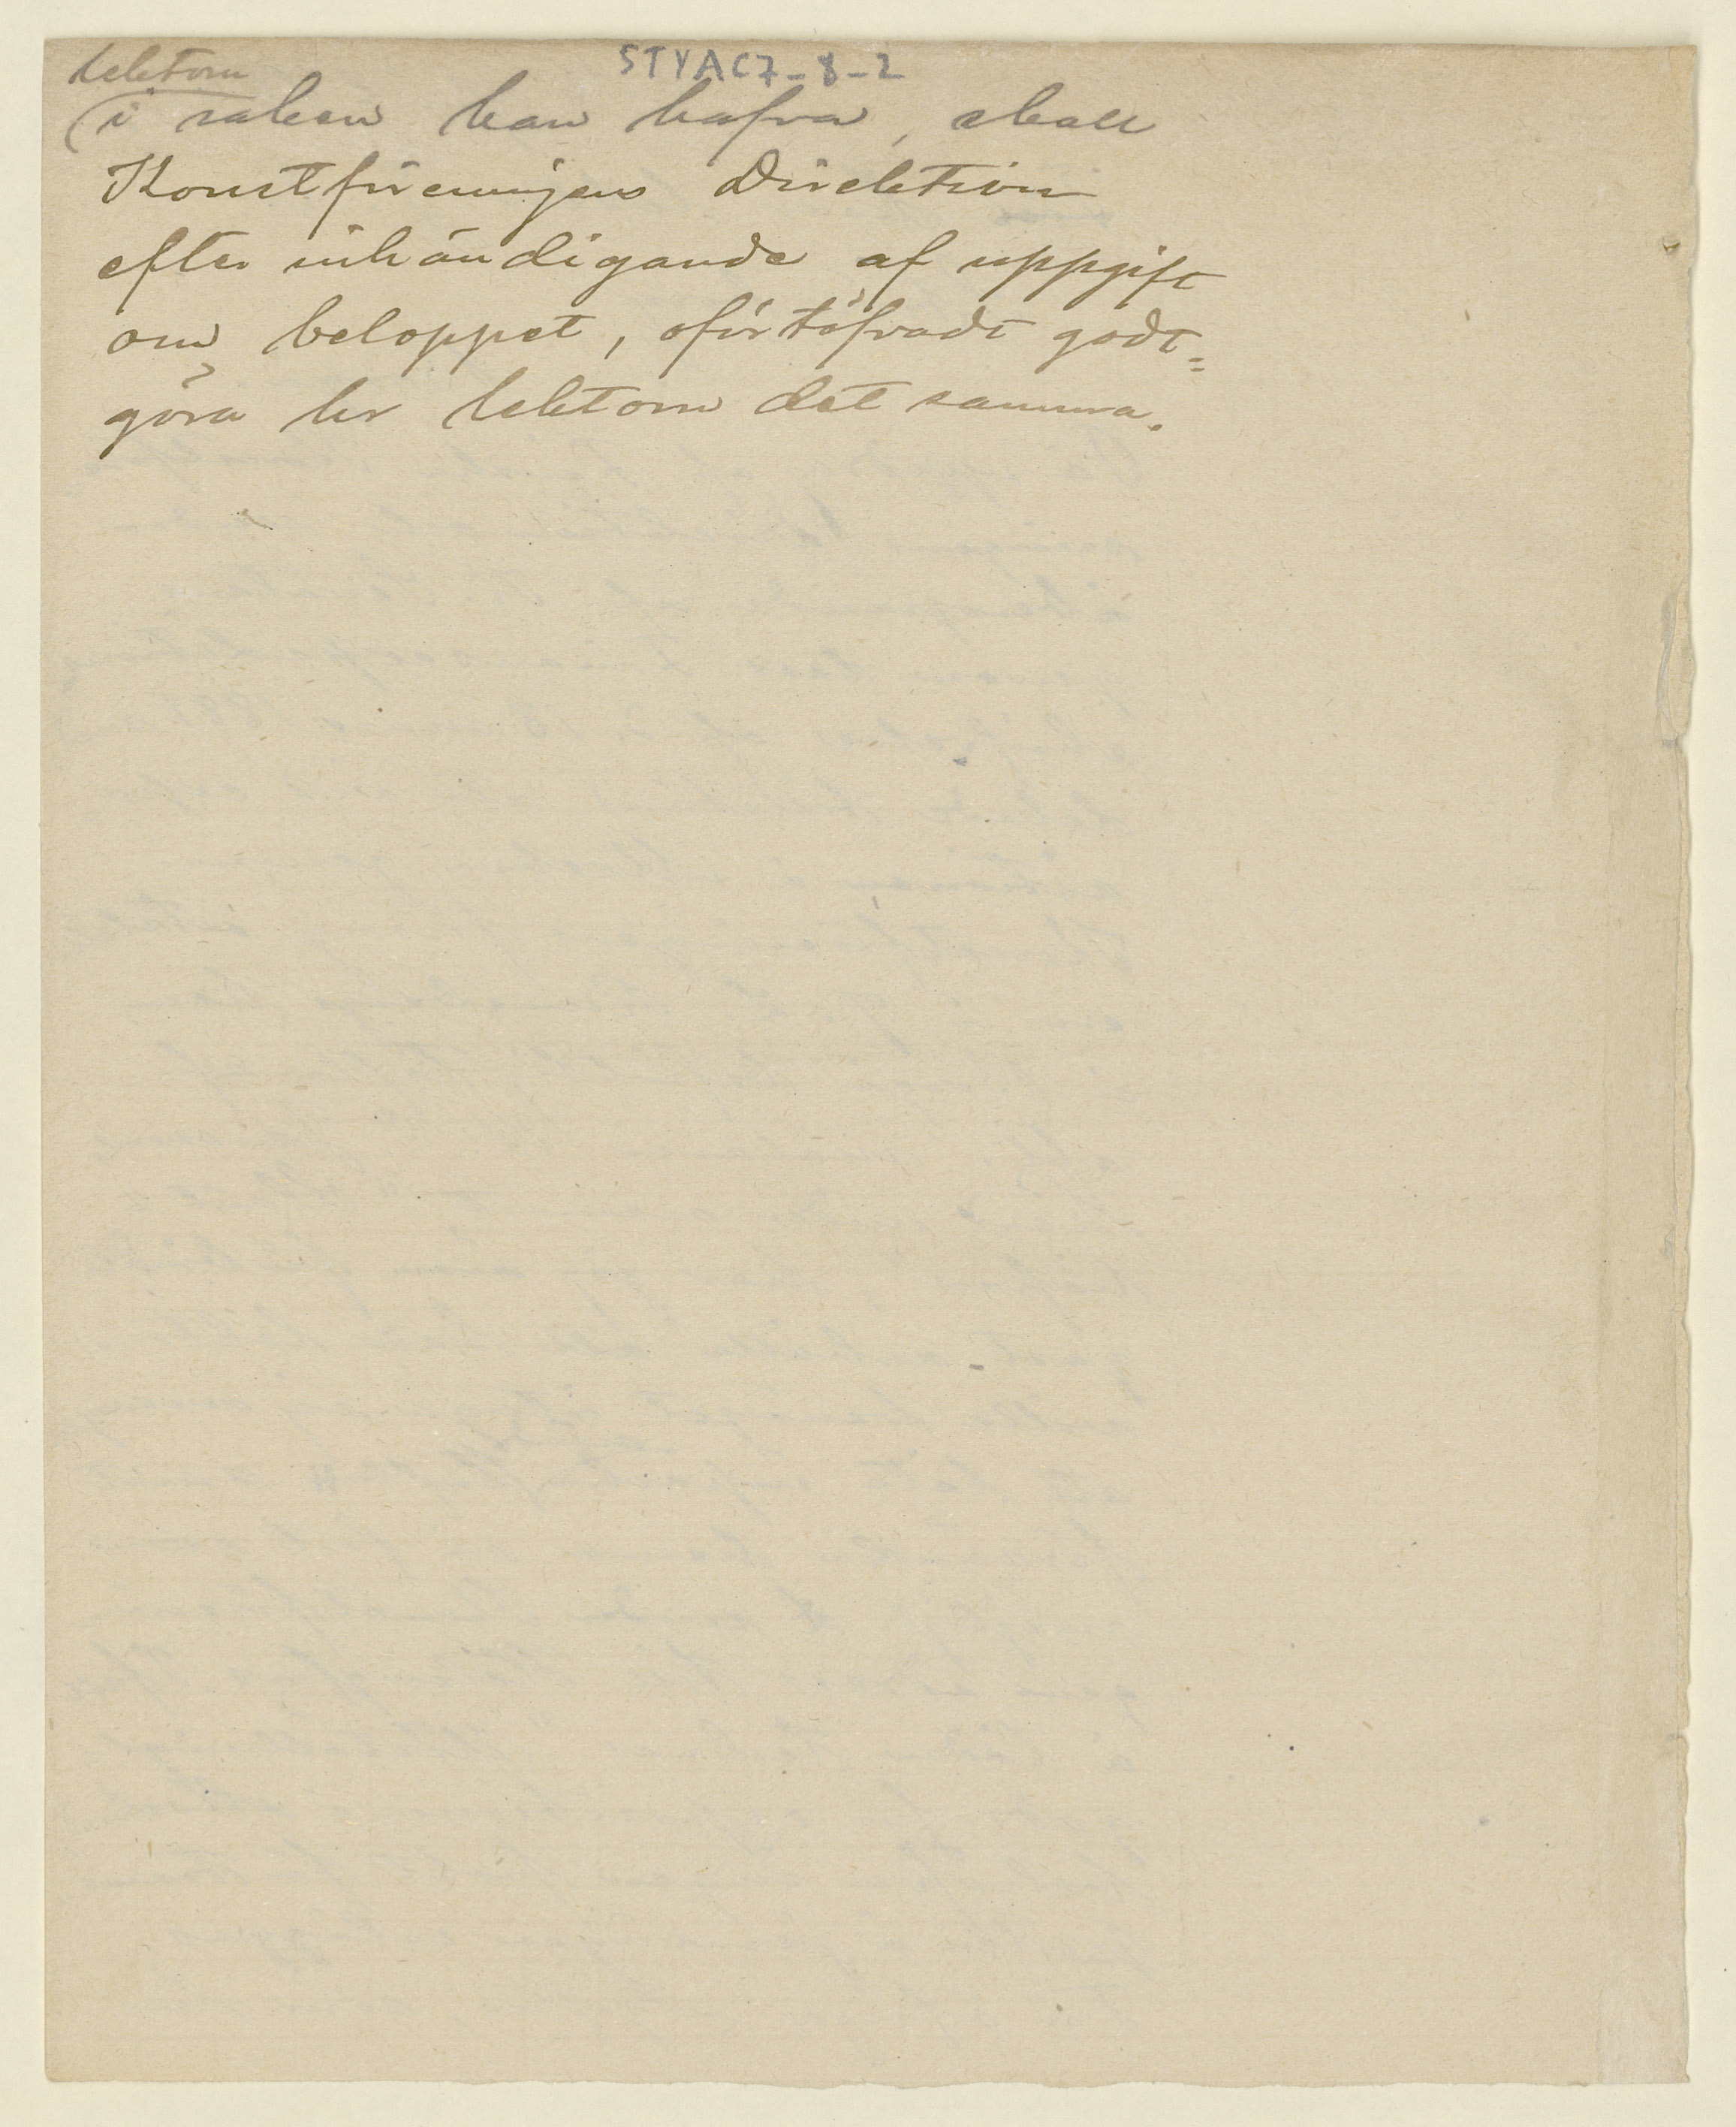 STYAC7-8-2
lektorn
i saken kan hafva, skall
Konstföreningens Direktion
efter inhändigande af uppgift
om beloppet, ofördröjfvadt godt-
göra hr lektorn det samma.